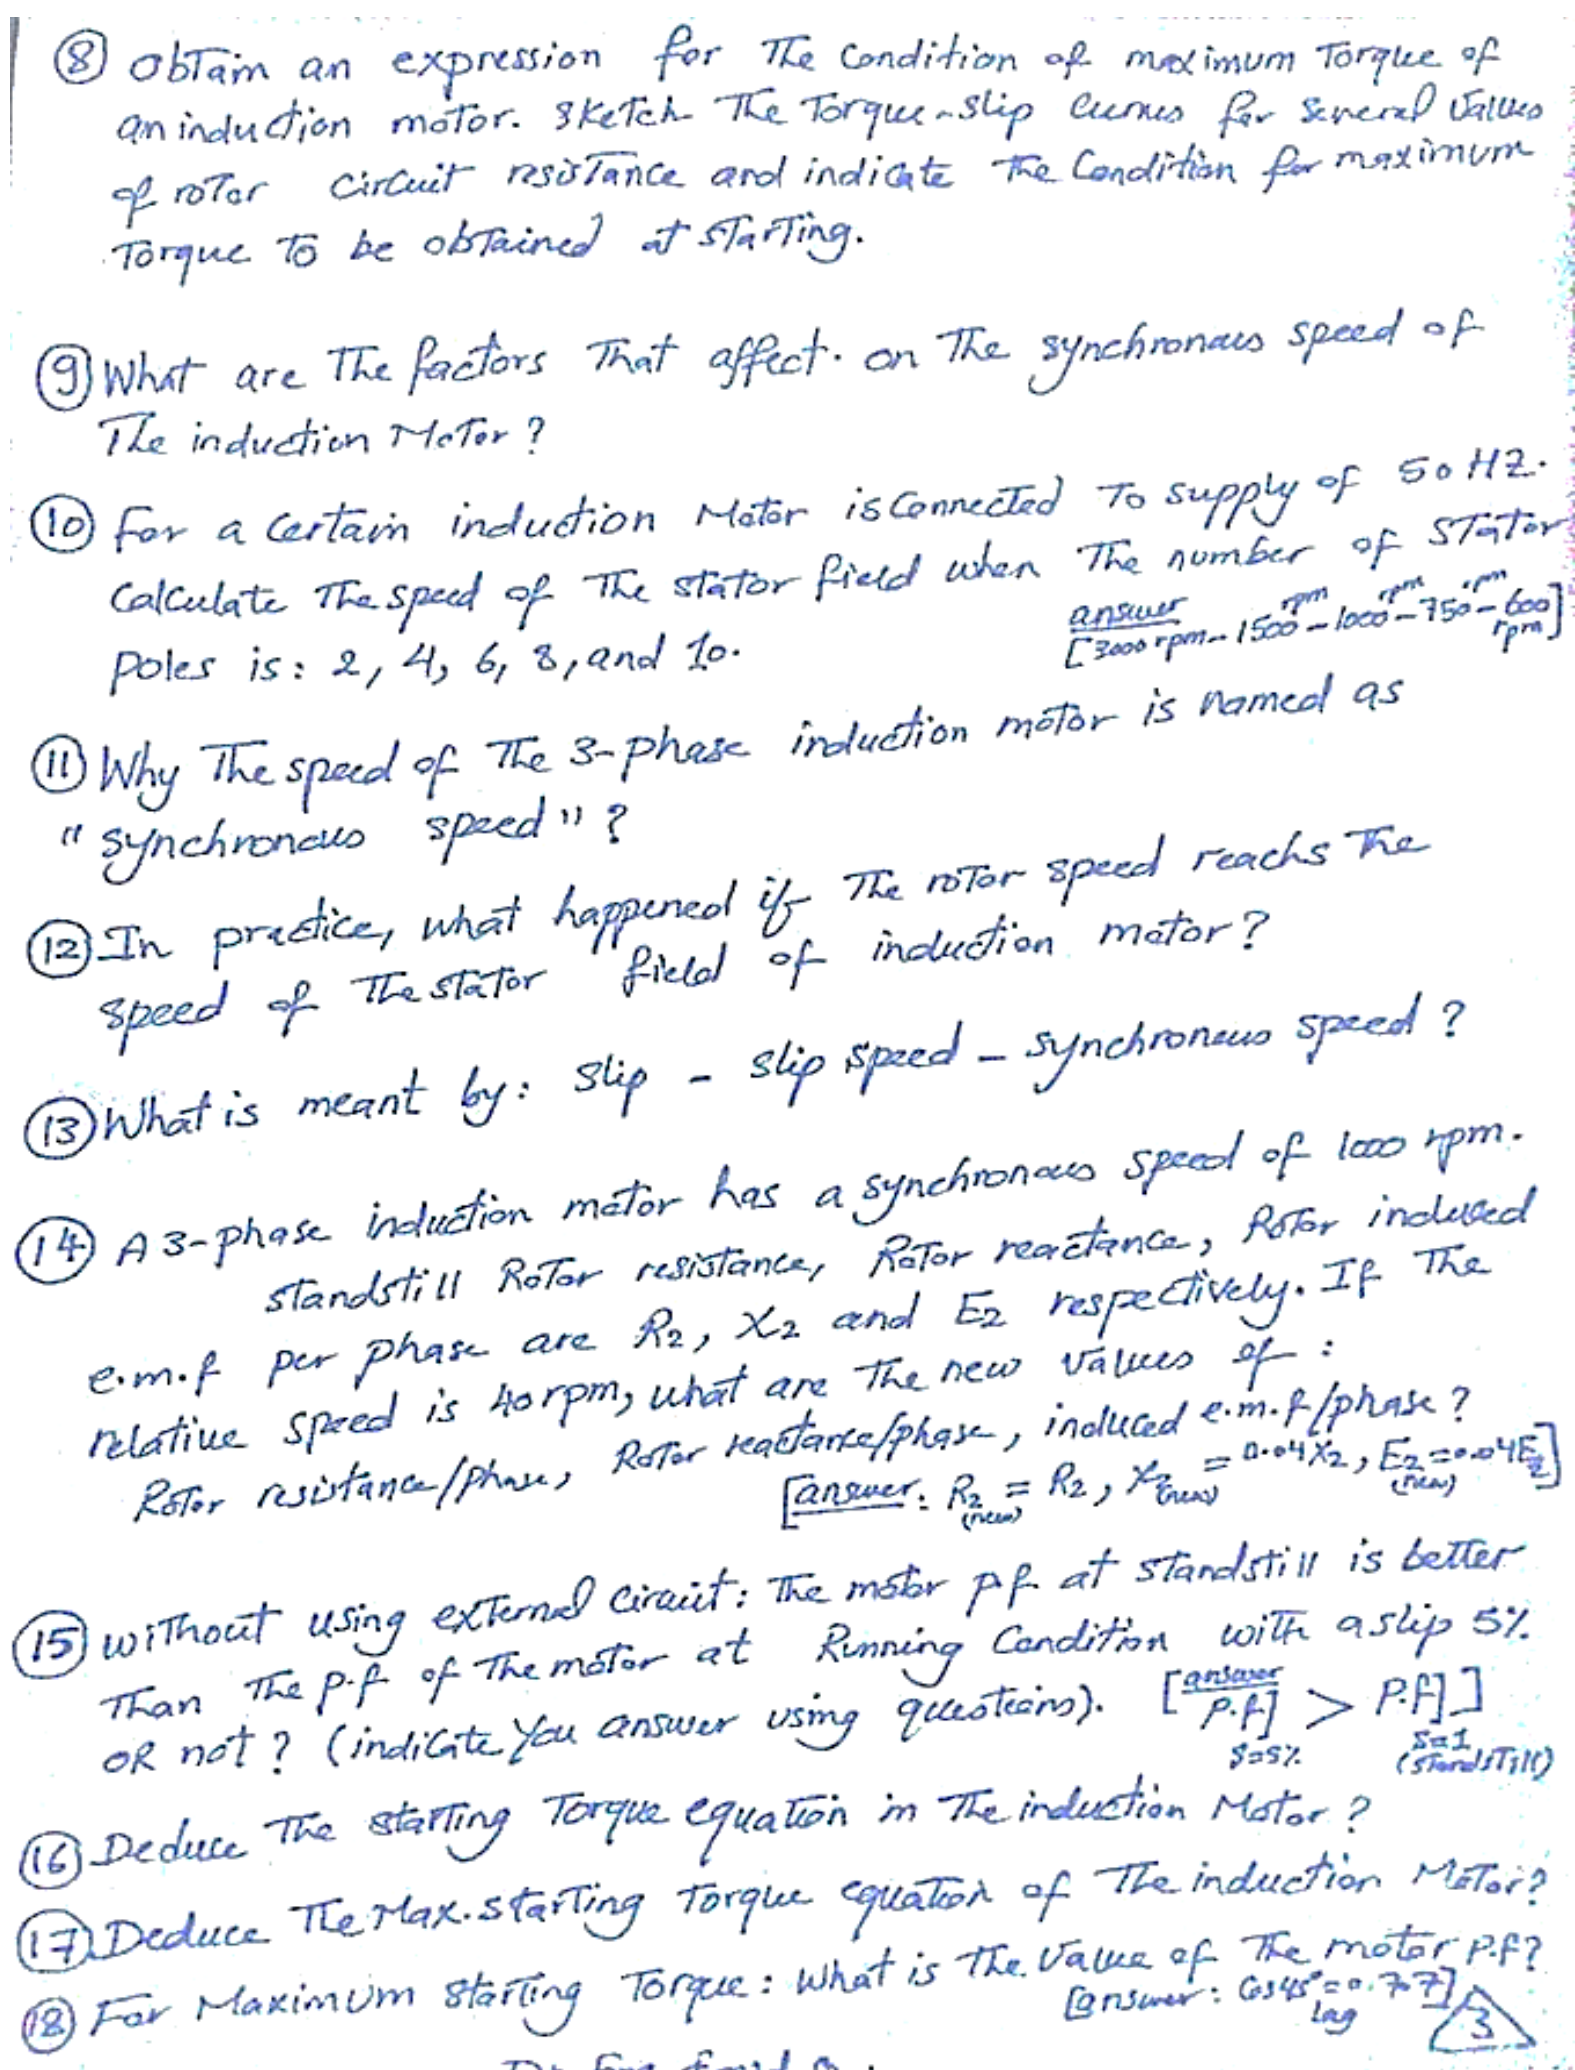 8 Obtain an expression for The Condition of maximum Torque of
an induction motor. Sketch The Torque-slip Curves for Several Values
of rotor Circuit resistance and indicate The Condition for maximum
Torque To be obtained at starting.
9 What are The factors That affect. on The synchronous speed of
The induction Motor?
10 For a Certain induction Motor is Connected To supply of 50 HZ.
Calculate The speed of The stator field when The number of Stator
Poles is: 2, 4, 6, 8, and 10.
answer
[3000 rpm - 1500 rpm - 1000 rpm - 750 rpm - 600 rpm]
11 Why The speed of The 3-phase induction motor is named as
"synchronous speed"?
12 In practice, what happened if The rotor speed reachs The
speed of The stator field of induction motor?
13 What is meant by: slip - slip speed - synchronous speed?
14 A 3-phase induction motor has a synchronous speed of 1000 rpm.
standstill Rotor resistance, Rotor reactance, Rotor induced
e.m.f per phase are R2, X2 and E2 respectively. If The
relative speed is 40 rpm, what are The new values of:
Rotor resistance/phase, Rotor reactance/phase, induced e.m.f/phase?
[answer: R2(new) = R2, X2(new) = 0.04 X2, E2(new) = 0.04 E2]
15 without using external Circuit: The motor p.f. at standstill is better
Than The p.f of The motor at Running Condition with a slip 5%
OR not? (indicate you answer using questions).
[answer P.f]s=5% > P.f]s=1 (standstill)]
16 Deduce The starting Torque equation in The induction Motor?
17 Deduce The Max. starting Torque equation of The induction Motor?
18 For Maximum starting Torque: What is The Value of The motor P.f?
[answer: Cos45° = 0.707] lag
3